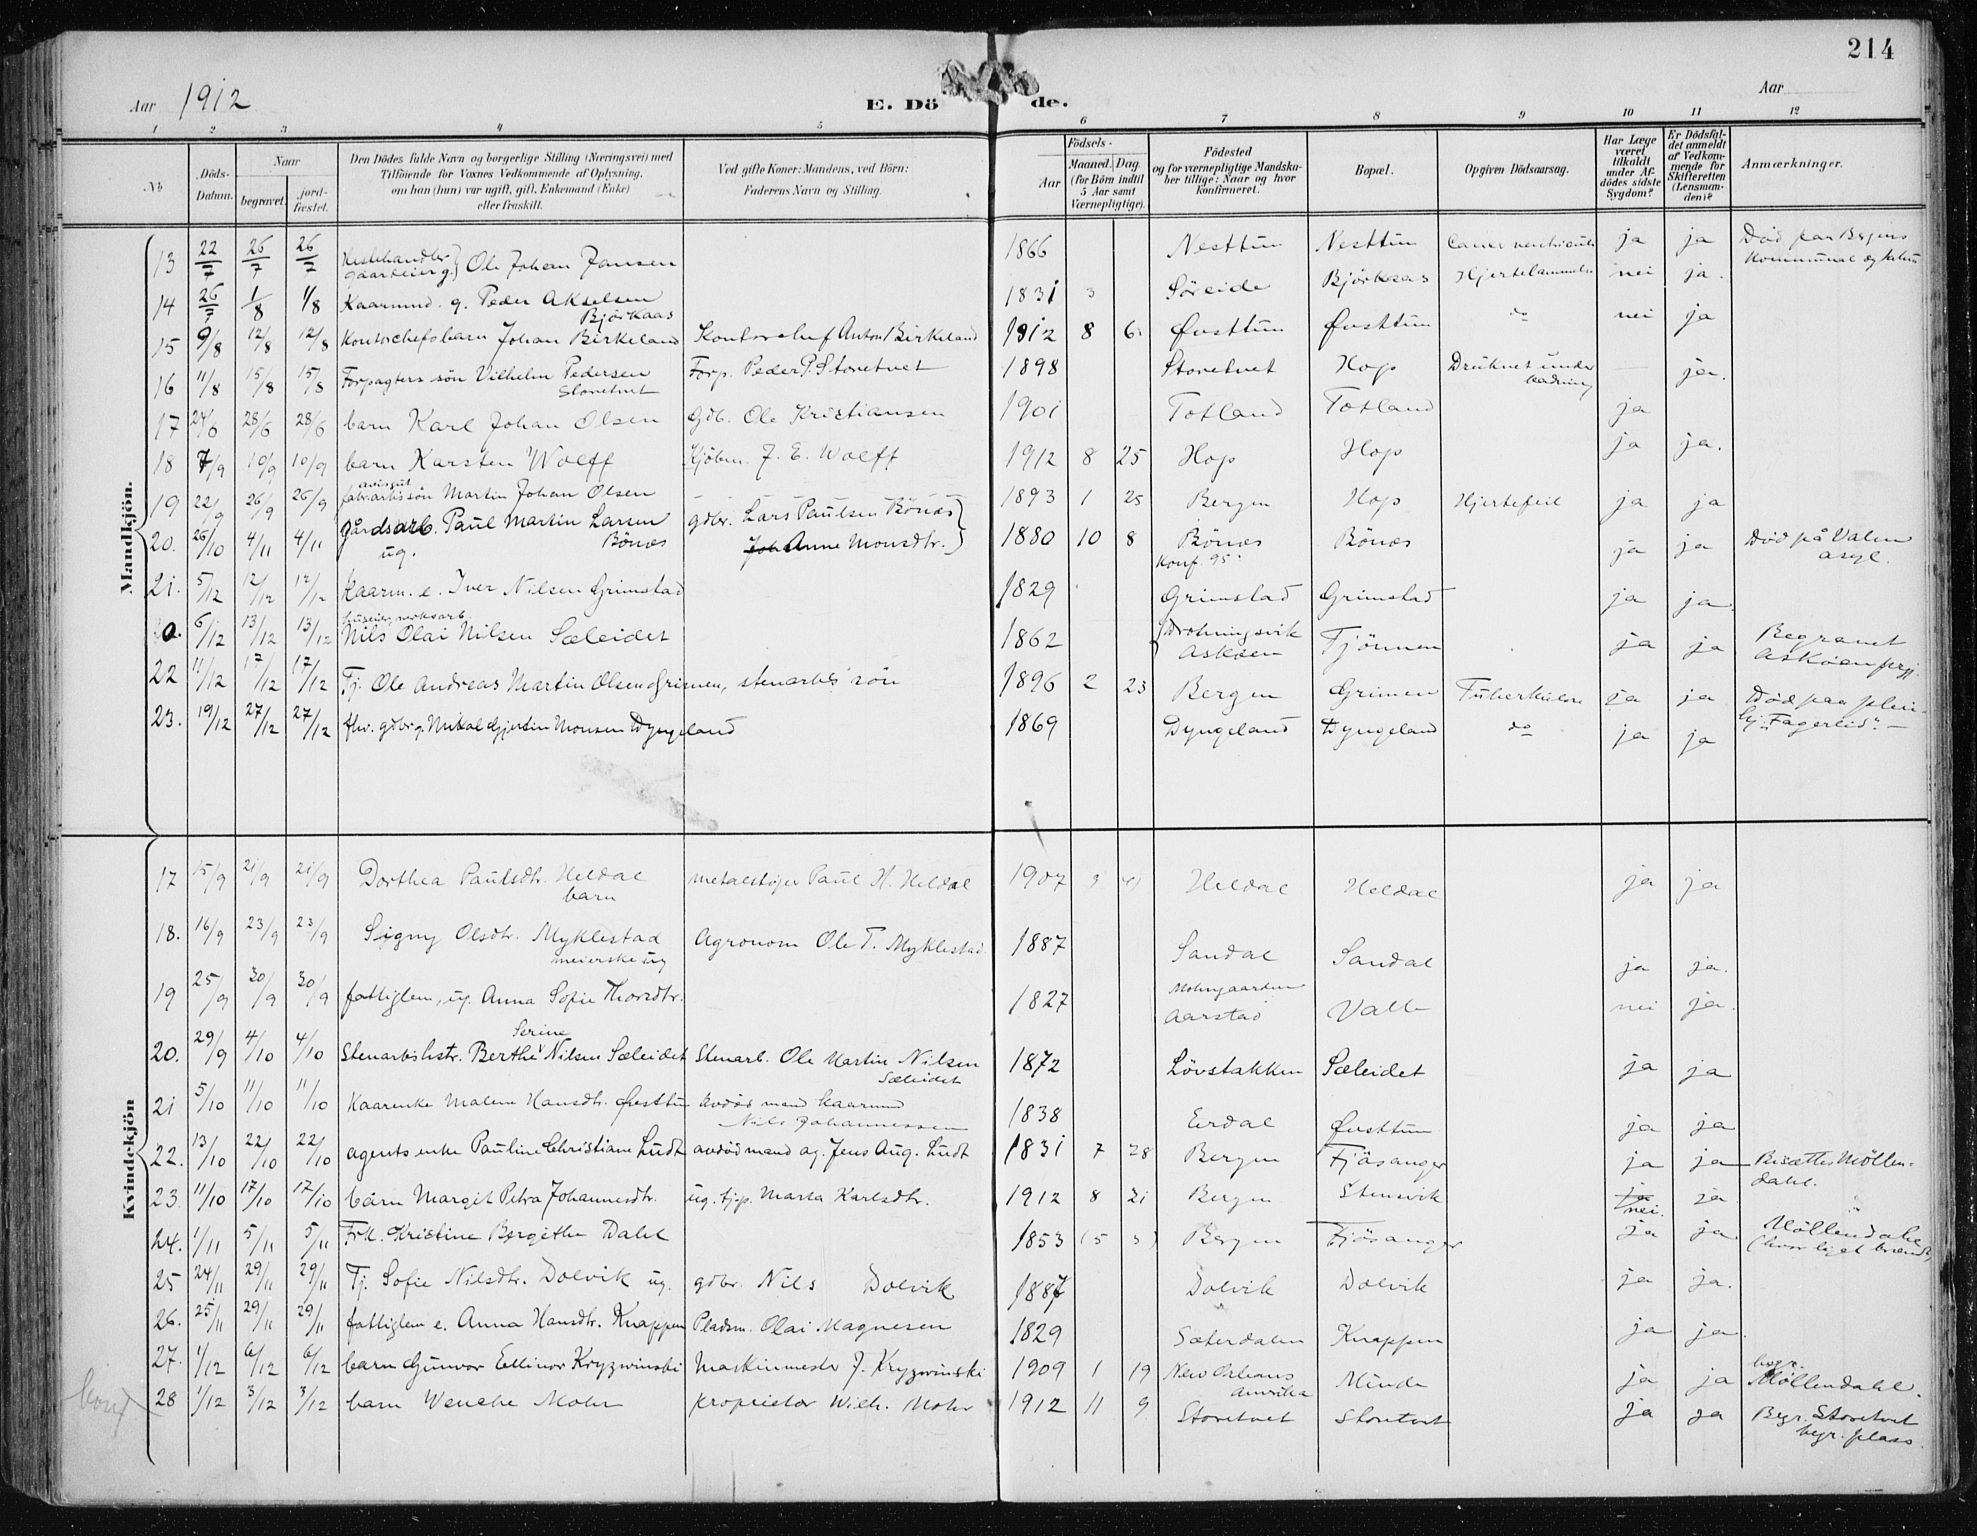 214
Aar 1912
E. Dö de.
Aar
1 2 3 4 5 6 7 8 9 10 11 12
No
Döds-Datum.
Naar
begravet.
jord-fæstet.
Den Dödes fulde Navn og borgerlige Stilling (Næringsvei) med
Tilföiende for Voxnes Vedkommende af Oplysning,
om han (hun) var ugift, gift, Enkemand (Enke)
eller fraskilt.
Ved gifte Koner: Mandens, ved Börn:
Faderens Navn og Stilling.
Födsels-
Aar
Maaned. Dag.
(for Börn indtil
5 Aar samt
Værnepligtige).
Födested
og for værnepligtige Mandska-
ber tillige: Naar og hvor
konfirmeret.
Bopæl.
Opgiven Dödsaarsag.
Har Læge
været
tilkaldt
under Af-
dödes sidste
Sygdom?
Er Dödsfal-
det anmeldt
af Vedkom-
mende for
Skifteretten
(Lensman-
den)?
Anmærkninger.
Mandkjön.
13 22/7 26/7 26/7 gaardeier g. Ole Johan Jansen 1866 Nesttun Nesttun Cancer ventriculi ja ja Död paa Bergens
Kommunale
14 26/7 1/8 1/8 Kaarmnd. g. Peder Akselsen 1831 3 Söreide Björkaas Hjertelammelse nei ja.
Björkaas
15 9/8 12/8 12/8 Kontorchefsbarn Johan Birkeland Kontorchef Anton Birkeland 1912 8 6 Øvsttun Øvsttun do nei ja
16 11/8 15/8 15/8 Forpagters sön Vilhelm Pedersen Forp. Peder P. Storetvet 1898 Storetvet Hop Druknet under — ja.
Storetvet badning
17 24/6 28/6 28/6 barn Karl Johan Olsen Gdb. Ole Kristiansen 1901 Totland Totland ja
18 7/9 10/9 10/9 barn Karsten Wolff Kjöbm. J. E. Wolff 1912 8 25 Hop Hop ja ja.
19 22/9 26/9 26/9 fabr.arb.s sön Martin Johan Olsen — 1893 1 25 Bergen Hop Hjertefeil ja ja
20. 26/10 4/11 4/11 Gårdsarb. Paul Martin Larsen gdbr. Lars Paulsen Bönæs 1880 10 8 Bönæs Bönæs ja ja Död på Valen
ug. Bönæs Anne Monsdtr. Konf. 95 asyl.
21. 5/12 12/12 12/12 Kaarm. e. Iver Nilsen Grimstad 1829 Grimstad Grimstad ja ja
0. 6/12 13/12 13/12 Nils Olai Nilsen Sæleidet 1862 Drotningsvik Tjönnen ja ja Begravet
Asköen Asköen prgj.
22 11/12 17/12 17/12 Tj. Ole Andreas Martin Olsen Grimen, stenarb.s sön 1896 2 23 Bergen Grimen Tuberkulose ja ja Död paa pleie-
23. 19/12 27/12 27/12 fhv. gdbr. g. Mikal Gjertin Monsen Dyngeland 1869 Dyngeland Dyngeland do ja ja hj. "Fagerlid" —
Kvindekjön
17 15/9 21/9 21/9 Dorthea Paulsdtr. Heldal metalstöper Paul H. Heldal 1907 Heldal Heldal ja ja
barn
18. 16/9 23/9 23/9 Signy Olsdtr. Myklestad Agronom Ole T. Myklestad 1887 Sandal Sandal ja ja.
meierske ug
19 25/9 30/9 30/9 fattiglem, ug. Anna Sofie Thorsdtr. 1827 Aarstad Valle nei ja.
Serine
20. 29/9 4/10 4/10 Stenarb.hstr. Berthe Nilsen Sæleidet Stenarb. Ole Martin Nilsen 1872 Lövstakken Sæleidet ja ja
Sæleidet
21 5/10 11/10 11/10 Kaarenke Malene Hansdtr. Øvsttun Avdöd mand kaarmnd 1838 Eirdal Øvsttun ja ja
Nils Johannessen
22. 13/10 22/10 22/10 agents enke Pauline Christiane Ludt avdöd mand ag. Jens Aug. Ludt 1831 7 28 Bergen Fjösanger ja ja Bisættes Möllen-
dahl.
23. 11/10 17/10 17/10 barn Margit Petra Johannesdtr. ug. tjp. Marta Karlsdtr. 1912 8 21 Bergen Stensvik ja nei. ja
24. 1/11 5/11 5/11 Frk. Kristine Bergithe Dahl 1853 Bergen Fjösanger ja ja Möllendahl
(hvor liget brændt)
25 24/11 29/11 29/11 Tj. Sofie Nilsdtr. Dolvik ug. gdbr. Nils Dolvik 1887 Dolvik Dolvik ja ja.
26. 25/11 29/11 29/11 fattiglem e. Anna Hansdtr. Knappen Pladsm. Olai Magnesen 1829 Sæterdalen Knappen ja ja.
27. 1/12 6/12 6/12 barn Gunvor Ellinor Kryzwinski Maskinmester J. Kryzwinski 1909 1 19 New Orleans Minde ja ja begr.
Amerika Möllendahl.
28 1/12 3/12 3/12 barn Wenche Mohr proprietær Wilh. Mohr 1912 11 9 Storetvet Storetvet ja ja Begr. Storetvet
begr. plass.